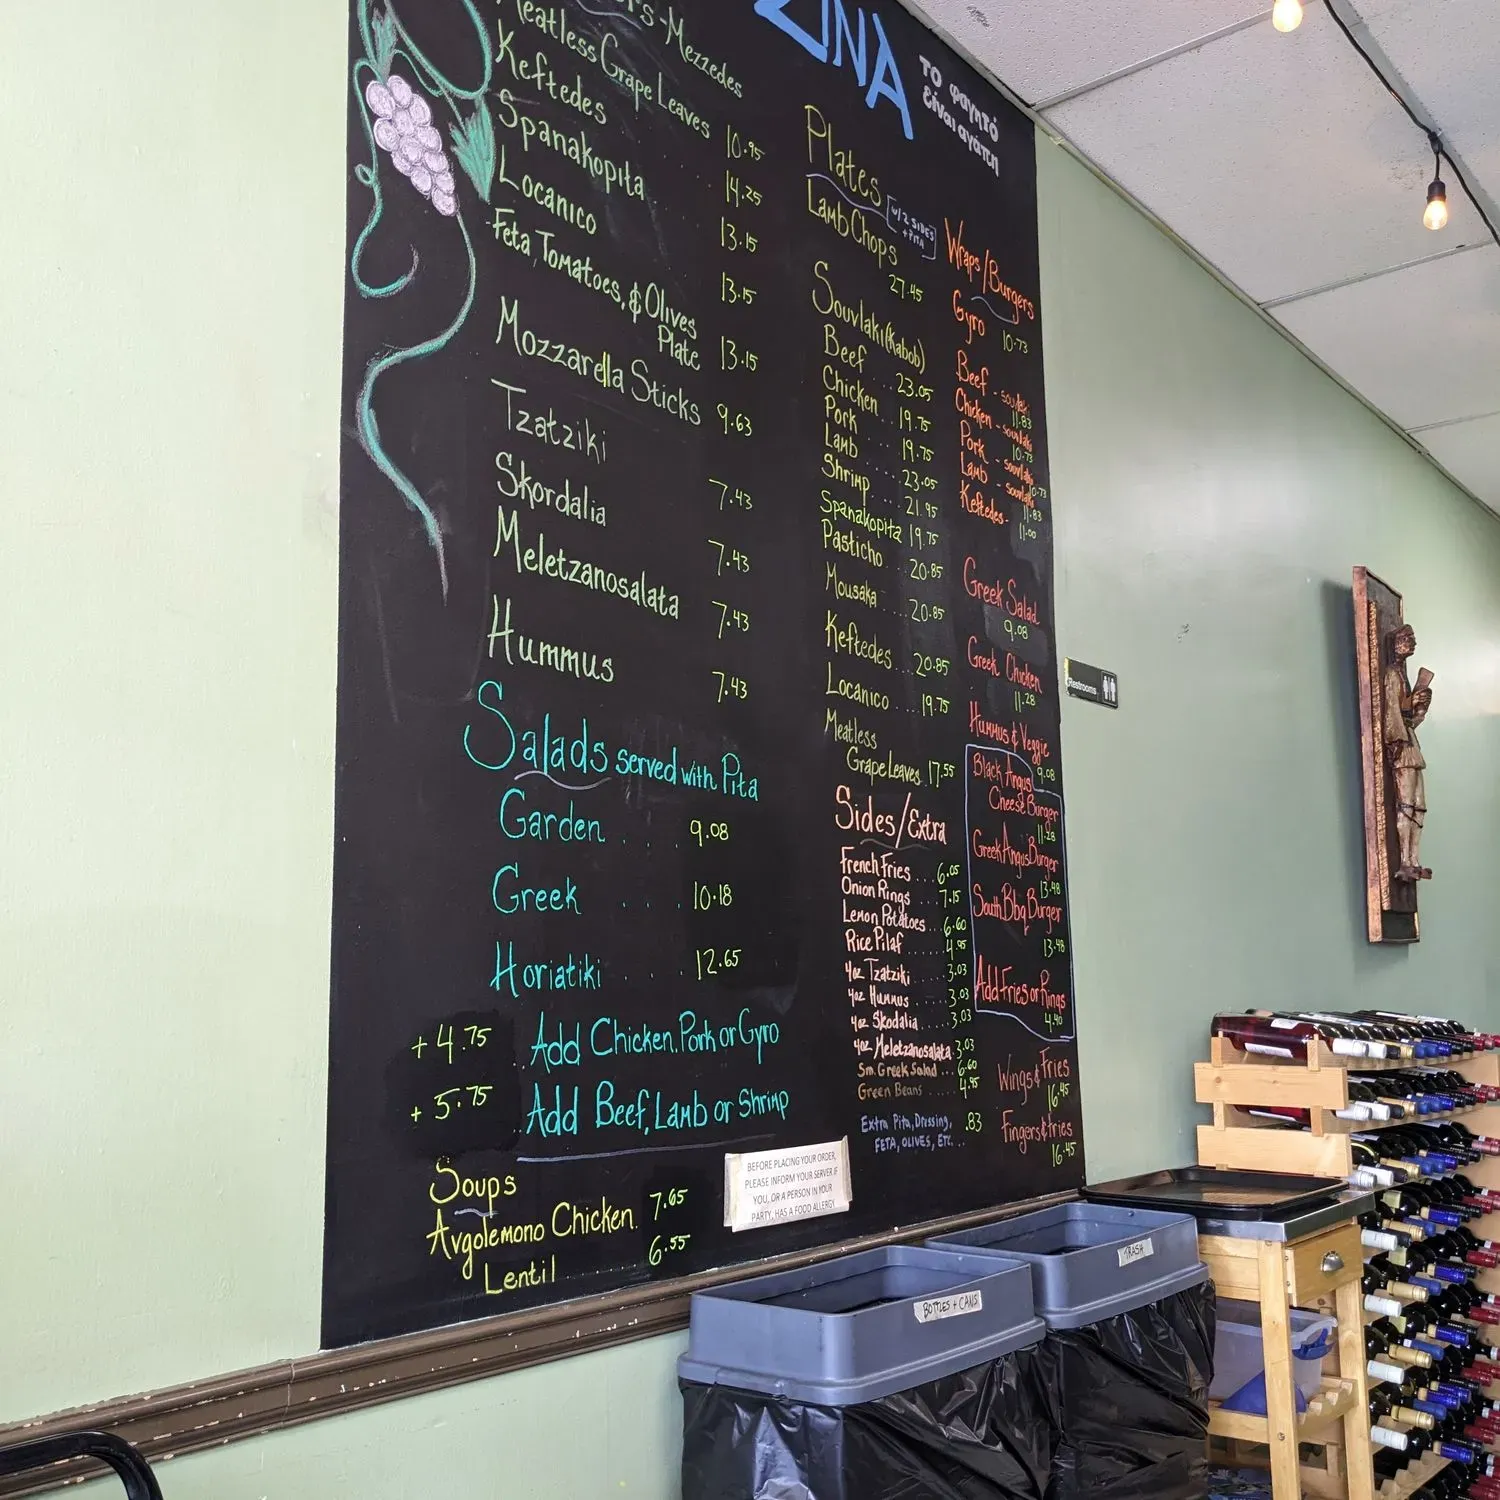 -Mezzedes
Meatless Grape Leaves 10.95
Keftedes 14.25
Spanakopita 13.15
Locanico 13.15
Feta, Tomatoes, & Olives
Plate 13.15
Mozzarella Sticks 9.63
Tzatziki 7.43
Skordalia 7.43
Meletzanosalata 7.43
Hummus 7.43
Salads served with Pita
Garden . . . 9.08
Greek . . . 10.18
Horiatiki . . . 12.65
+ 4.75 .. Add Chicken, Pork or Gyro
+ 5.75 .. Add Beef, Lamb or Shrimp
Soups
Avgolemono Chicken. 7.65
Lentil 6.55
BEFORE PLACING YOUR ORDER,
PLEASE INFORM YOUR SERVER IF
YOU, OR A PERSON IN YOUR
PARTY, HAS A FOOD ALLERGY
ΖΙΝΑ
το φαγητό
είναι αγάπη
Plates
w/ 2 SIDES
+ PITA
Lamb Chops 27.45
Souvlaki (Kabob)
Beef ... 23.05
Chicken ... 19.75
Pork ... 19.75
Lamb .... 23.05
Shrimp .... 21.95
Spanakopita 19.75
Pasticho ... 20.85
Mousaka - 20.85
Keftedes ... 20.85
Locanico .... 19.75
Meatless
Grape Leaves . 17.55
Sides/Extra
French Fries ... 6.05
Onion Rings .... 7.15
Lemon Potatoes ... 6.60
Rice Pilaf ..... 4.95
4oz Tzatziki .... 3.03
4oz Hummus .... 3.03
4oz Skodalia .... 3.03
4oz Meletzanosalata . 3.03
Sm. Greek Salad ... 6.60
Green Beans ..... 4.95
Extra Pita, Dressing, .83
FETA, OLIVES, ETC...
Wraps/Burgers
Gyro 10.73
Beef - souvlaki
11.83
Chicken - souvlaki
10.73
Pork - souvlaki
10.73
Lamb - souvlaki
11.83
Keftedes - 11.00
Greek Salad
9.08
Greek Chicken
11.28
Hummus & Veggie
9.08
Black Angus
Cheese Burger
11.28
Greek Angus Burger
13.48
South Bbq Burger
13.48
Add Fries or Rings
4.40
Wings & Fries
16.45
Fingers & Fries
16.45
Restrooms
BOTTLES + CANS
TRASH